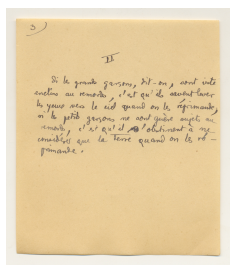 3)
II
Si les grands garçons, dit-on, sont vite
enclins au remords, c'est qu'ils savent lever
les yeux vers le ciel quand on les réprimande,
si les petits garçons ne sont guère sujets au
remords, c'est qu'ils s'obstinent à ne
considérer que la Terre quand on les ré-
primande.